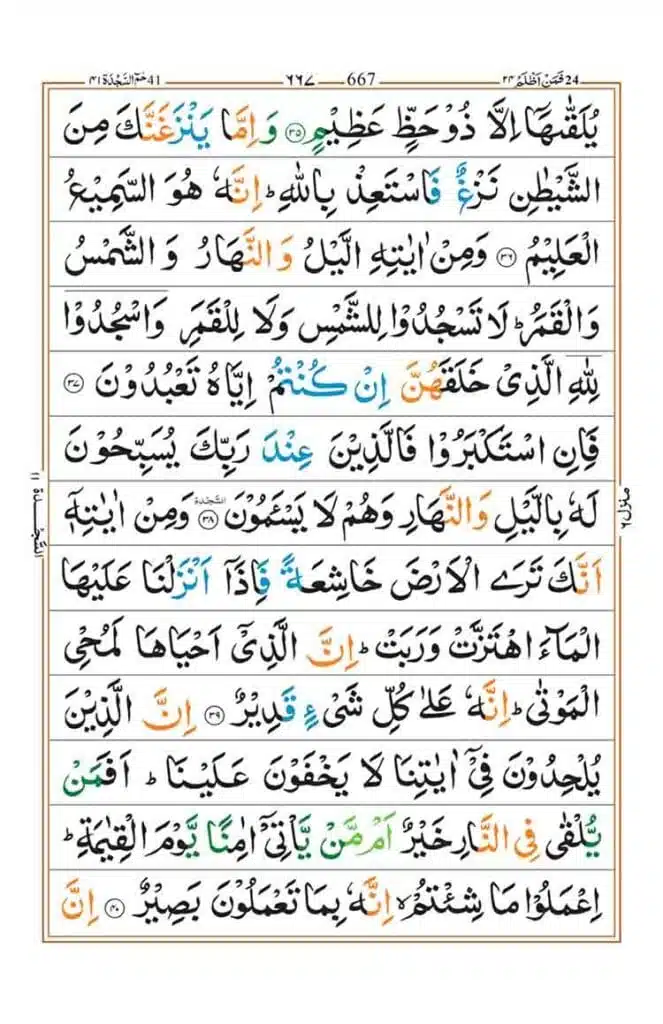 41 حٰمٓ السَّجْدَة ٤١ ٦٦٧ 667 24 فَمَنْ اَظْلَمُ ٢٤
يُلَقّٰىهَاۤ اِلَّا ذُوْ حَظٍّ عَظِيْمٍ ۝٣٥ وَ اِمَّا يَنْزَغَنَّكَ مِنَ
الشَّيْطٰنِ نَزْغٌ فَاسْتَعِذْ بِاللّٰهِ ؕ اِنَّهٗ هُوَ السَّمِيْعُ
الْعَلِيْمُ ۝٣٦ وَ مِنْ اٰيٰتِهِ الَّيْلُ وَ النَّهَارُ وَ الشَّمْسُ
وَ الْقَمَرُ ؕ لَا تَسْجُدُوْا لِلشَّمْسِ وَ لَا لِلْقَمَرِ وَ اسْجُدُوْا
لِلّٰهِ الَّذِيْ خَلَقَهُنَّ اِنْ كُنْتُمْ اِيَّاهُ تَعْبُدُوْنَ ۝٣٧
فَاِنِ اسْتَكْبَرُوْا فَالَّذِيْنَ عِنْدَ رَبِّكَ يُسَبِّحُوْنَ
لَهٗ بِالَّيْلِ وَ النَّهَارِ وَ هُمْ لَا يَسْـَٔمُوْنَ ۝٣٨ السَّجْدَة وَ مِنْ اٰيٰتِهٖۤ
اَنَّكَ تَرَى الْاَرْضَ خَاشِعَةً فَاِذَاۤ اَنْزَلْنَا عَلَيْهَا
الْمَآءَ اهْتَزَّتْ وَ رَبَتْ ؕ اِنَّ الَّذِيْۤ اَحْيَاهَا لَمُحْيِ
الْمَوْتٰى ؕ اِنَّهٗ عَلٰى كُلِّ شَيْءٍ قَدِيْرٌ ۝٣٩ اِنَّ الَّذِيْنَ
يُلْحِدُوْنَ فِيْۤ اٰيٰتِنَا لَا يَخْفَوْنَ عَلَيْنَا ؕ اَفَمَنْ
يُّلْقٰى فِي النَّارِ خَيْرٌ اَمْ مَّنْ يَّاْتِيْۤ اٰمِنًا يَّوْمَ الْقِيٰمَةِ ؕ
اِعْمَلُوْا مَا شِئْتُمْ ۙ اِنَّهٗ بِمَا تَعْمَلُوْنَ بَصِيْرٌ ۝٤٠ اِنَّ
منزل ٦
السَّجْدَة ١١